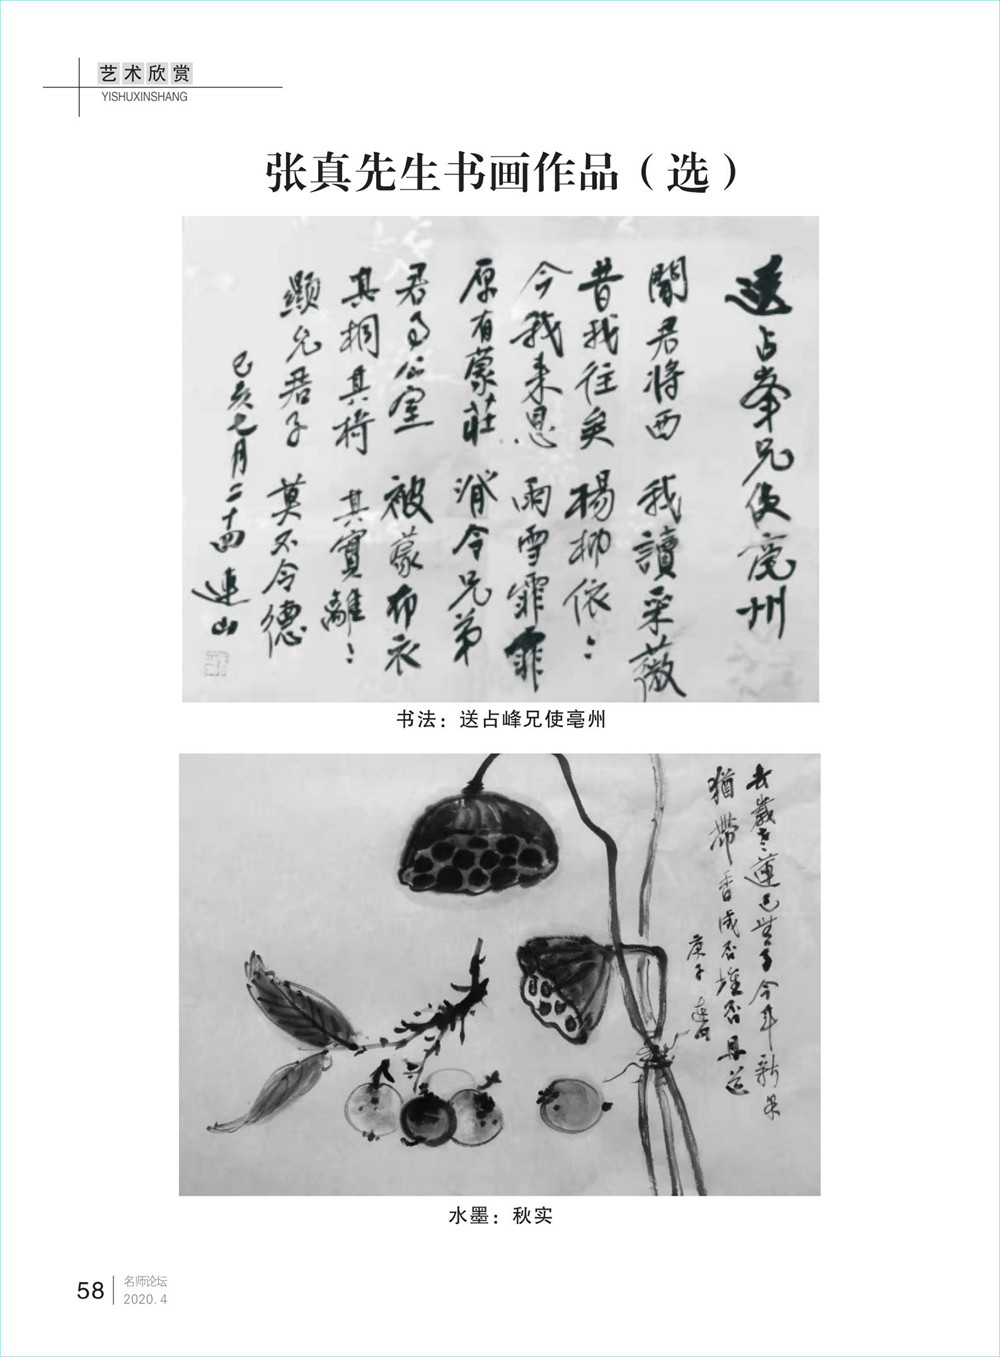 艺术欣赏
YISHUXINSHANG
张真先生书画作品（选）
送占峯兄使亳州
聞君将西 我讀采薇
昔我往矣 楊柳依：
今我来思 雨雪霏霏
原有蒙莊 令兄弟
君子公室 被蒙布衣
其桐其椅 其實離：
顯允君子 莫不令德
己亥七月二十四 連山
书法：送占峰兄使亳州
去歲老蓮已無子今年新果
猶帶香
庚子 连山
水墨：秋实
58
名师论坛
2020.4